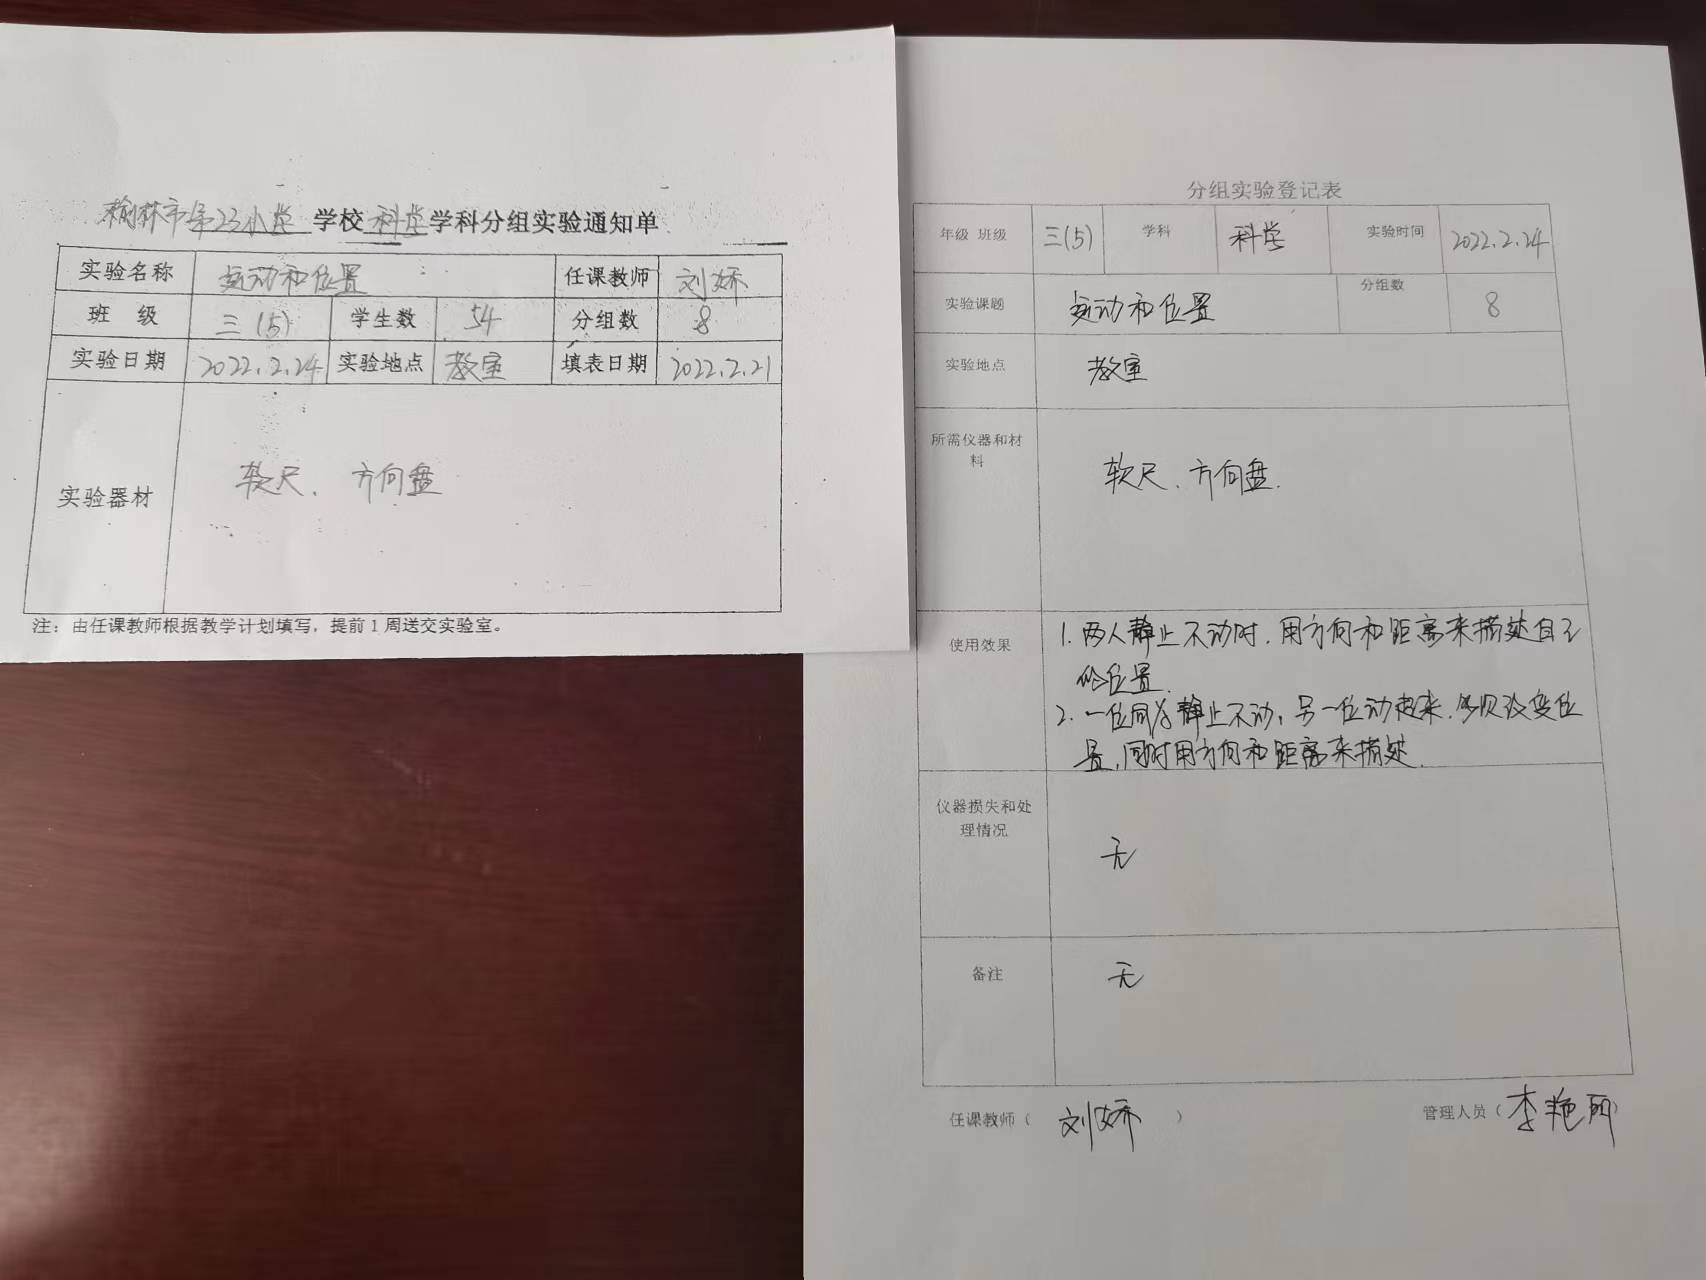 榆林市第23小学 学校 科学 学科分组实验通知单
实验名称 运动和位置 任课教师 刘娇
班 级 三(5) 学生数 54 分组数 8
实验日期 2022.2.24 实验地点 教室 填表日期 2022.2.21
实验器材 软尺、方向盘
注：由任课教师根据教学计划填写，提前1周送交实验室。
分组实验登记表
年级 班级 三(5) 学科 科学 实验时间 2022.2.24
实验课题 运动和位置 分组数 8
实验地点 教室
所需仪器和材
料
软尺、方向盘.
使用效果
1. 两人静止不动时.用方向和距离来描述自己
的位置.
2. 一位同学静止不动，另一位动起来.多次改变位
置，同时用方向和距离来描述.
仪器损失和处
理情况
无
备注 无
任课教师（ 刘娇 ） 管理人员（李艳丽）